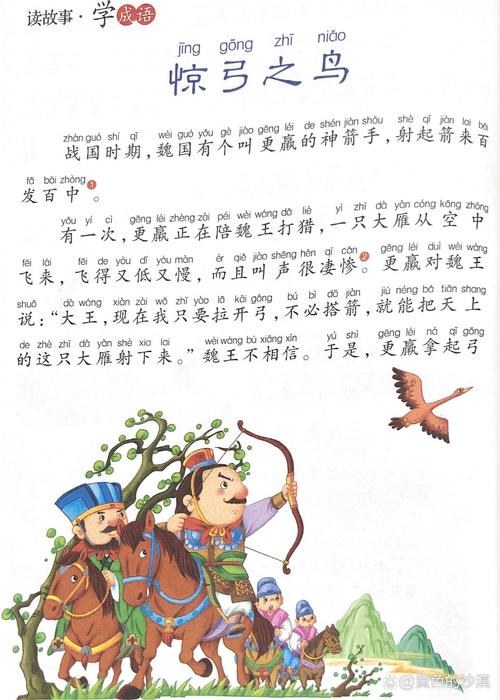 读故事·学成语
jīng gōng zhī niǎo
惊弓之鸟
zhàn guó shí qī wèi guó yǒu gè jiào gēng léi de shén jiàn shǒu shè qǐ jiàn lái bǎi
战国时期，魏国有个叫更羸的神箭手，射起箭来百
fā bǎi zhòng
发百中❶。
yǒu yí cì gēng léi zhèng zài péi wèi wáng dǎ liè yì zhī dà yàn cóng kōng zhōng
有一次，更羸正在陪魏王打猎，一只大雁从空中
fēi lái fēi de yòu dī yòu màn ér qiě jiào shēng hěn qī cǎn gēng léi duì wèi wáng
飞来，飞得又低又慢，而且叫声很凄惨❷。更羸对魏王
shuō dà wáng xiàn zài wǒ zhǐ yào lā kāi gōng bú bì dā jiàn jiù néng bǎ tiān shang
说：“大王，现在我只要拉开弓，不必搭箭，就能把天上
de zhè zhī dà yàn shè xia lai wèi wáng bù xiāng xìn yú shì gēng léi ná qǐ gōng
的这只大雁射下来。”魏王不相信。于是，更羸拿起弓
@黄色的沙漠